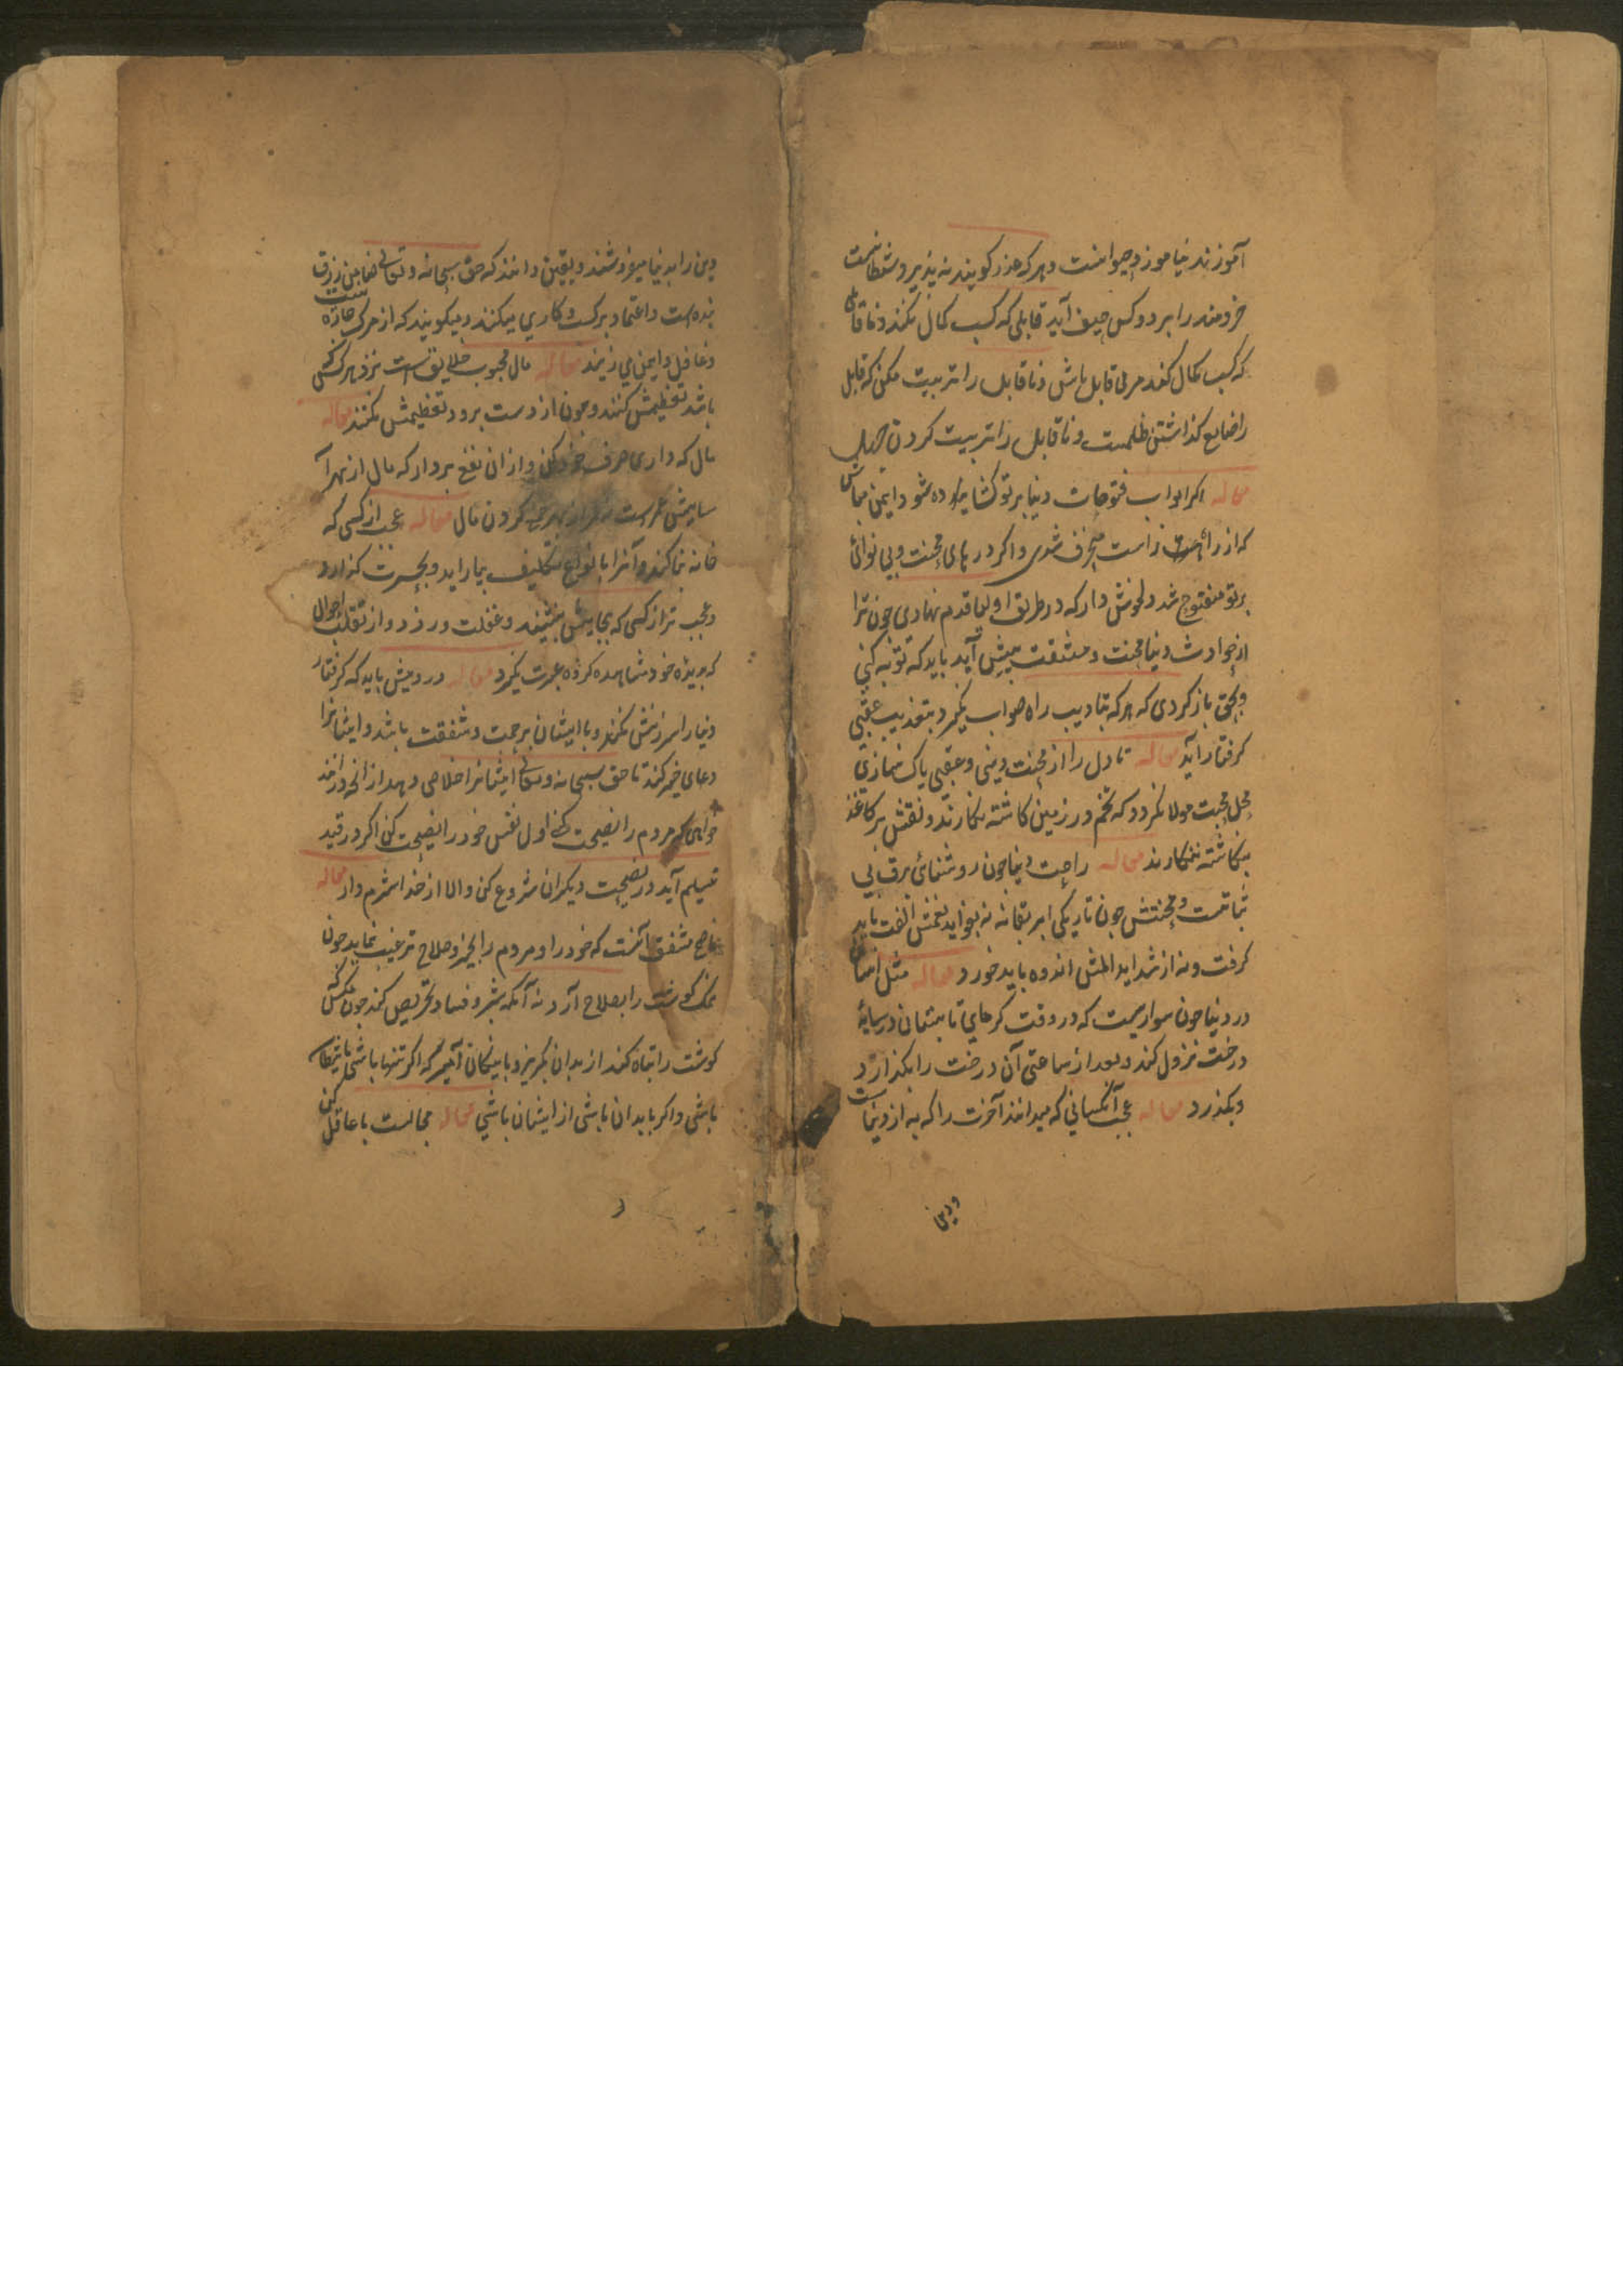 آموزند نیاموزد حیوانست و هرکه عذر کویند نه پذیرد شیطانست
خردمند را بر دو کس حیف آید قابلی که کسب کمال نکند و ناقابلی
که کسب کمال کند مربی قابل باش و ناقابل را تربیت مکن که قابل
را ضایع کذاشتن ظلمست و ناقابل را تربیت کردن جهل
مقاله اکر ابواب فتوحات دنیا بر تو کشاده شود ایمن مباش
که از راه راست منحرف شدی و اکر درهای محنت و بی نوائی
بر تو مفتوح شد دلخوش دار که در طریق اولیا قدم نهادی چون ترا
از حوادث دنیا محنت و مشقت پیش آید باید که توبه کنی
و بحق باز کردی که هرکه بتادیب راه صواب نکیرد بتعذیب عقبی
کرفتار آید مقاله تا دل را از محبت دنیی و عقبی پاک نسازی
محل محبت مولا نکردد که تخم در زمین کاشته نکارند و نقش بر کاغذ
نکاشته ننکارند مقاله راحت دنیا چون روشنائی برق بی
ثباتست و محنتش چون تاریکی ابر بقا نه نه بفواید نعمتش الفت باید
کرفت و نه از شدایدالمش اندوه باید خورد مقاله مثل انسان
در دنیا چون سواریست که در وقت کرمای تابستان در سایهٔ
درخت نزول کند و بعد از ساعتی آن درخت را بکذارد
و بکذرد مقاله عجب آنکسانی که میدانند آخرت را که به از دنیاست
و دین
دین را بدنیا میفروشند و یقین دانند که حق سبحانه و تعالی ضامن رزق
بنده است و اعتماد بر کسب و کاری میکنند و میکویند که از مرک چاره نیست
و غافل و ایمن می زیند مقاله مال محبوب خلایق است نزد هرکس که
باشد تعظیمش کنند و چون از دست برود تعظیمش نکنند مقاله
مال که داری صرف خود کن و از ان نفع بردار که مال از بهر آ
سایش عمر است نه عمر از بهر کرد کردن مال مقاله عجب از کسی که
خانه بنا کند و آنرا بانواع تکلیف بیاراید و بحسرت کذارد
و عجب تر از کسی که بجایش بنشیند و غفلت ورزد و از تقلب احوال
که بدیده خود مشاهده کرده عبرت نکیرد مقاله درویش باید که کرفتار
دنیا را سرزنش نکند و با ایشان برحمت و شفقت باشد و ایشانرا
دعای خیر کند تا حق سبحانه و تعالی ایشانرا خلاصی دهد از آنچه در آنند
خواهی که مردم را نصیحت کنی اول نفس خود را نصیحت کن اکر در قید
تسلیم آید در نصیحت دیکران شروع کن و الا از خدا شرم دار مقاله
ناصح مشفق آنست که خود را و مردم را بخیر و صلاح ترغیب نماید چون
نمک کوشت را بصلاح آرد نه آنکه بشر و فساد تحریص کند چون مکس که
کوشت را تباه کند از بدان بکریز و با نیکان آمیز که اکر تنها باشی با شیطان
باشی و اکر با بدان باشی از ایشان باشی مقاله مجالست با عاقل کن